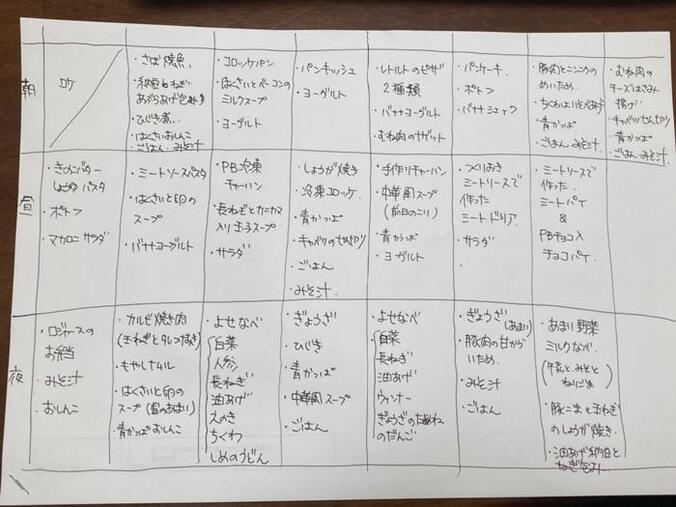 朝
ロケ
・さば焼魚
・納豆とねぎ
あぶらあげ包み
・ひじき煮
・はくさいおしんこ
・ごはん・みそ汁
・コロッケパン
・はくさいとベーコンの
ミルクスープ
・ヨーグルト
・パンキッシュ
・ヨーグルト
・レトルトのピザ
2種類
・バナナヨーグルト
・むね肉のナゲット
・パンケーキ
・ポトフ
・バナナジュース
・豚肉とニンニクの
めいため
・青かっぱ
・ごはん・みそ汁
・むね肉の
チーズはさみ
揚げ
・キャベツせんぎり
・青かっぱ
・ごはん・みそ汁
昼
・きのこバター
しょうゆパスタ
・ポトフ
・マカロニサラダ
・ミートソースパスタ
・はくさいと卵の
スープ
・バナナヨーグルト
・PB冷凍
チャーハン
・長ねぎとカニカマ
入り玉子スープ
・サラダ
・しょうが焼き
・冷凍コロッケ
・青かっぱ
・キャベツのせんぎり
・ごはん
・みそ汁
・手作りチャーハン
・中華風スープ
(前日のこり)
・青かっぱ
・ヨーグルト
・つくりおき
ミートソースで
作った
ミートドリア
・サラダ
・ミートソースで
作った
ミートパイ
&
PBチョコ入
チョコパイ
夜
・ロジャースの
お弁当
・みそ汁
・おしんこ
・カルビ焼き肉
(玉ねぎとタレつき)
・もやしナムル
・はくさいと卵の
スープ(昼のあまり)
・青かっぱおしんこ
・よせなべ
白菜
人参
長ねぎ
油あげ
えのき
ちくわ
しめのうどん
・ぎょうざ
・ひじき
・青かっぱ
・中華風スープ
・ごはん
・よせなべ
白菜
長ねぎ
油あげ
ウィンナー
ぎょうざのたね
のだんご
・ぎょうざ(あまり)
・豚肉の甘から
いため
・みそ汁
・ごはん
・あまり野菜
ミルクなべ
(牛乳とみそと
ねりごま)
・豚こまと玉ねぎ
のしょうが焼き
・油あげ納豆と
ねぎ包み